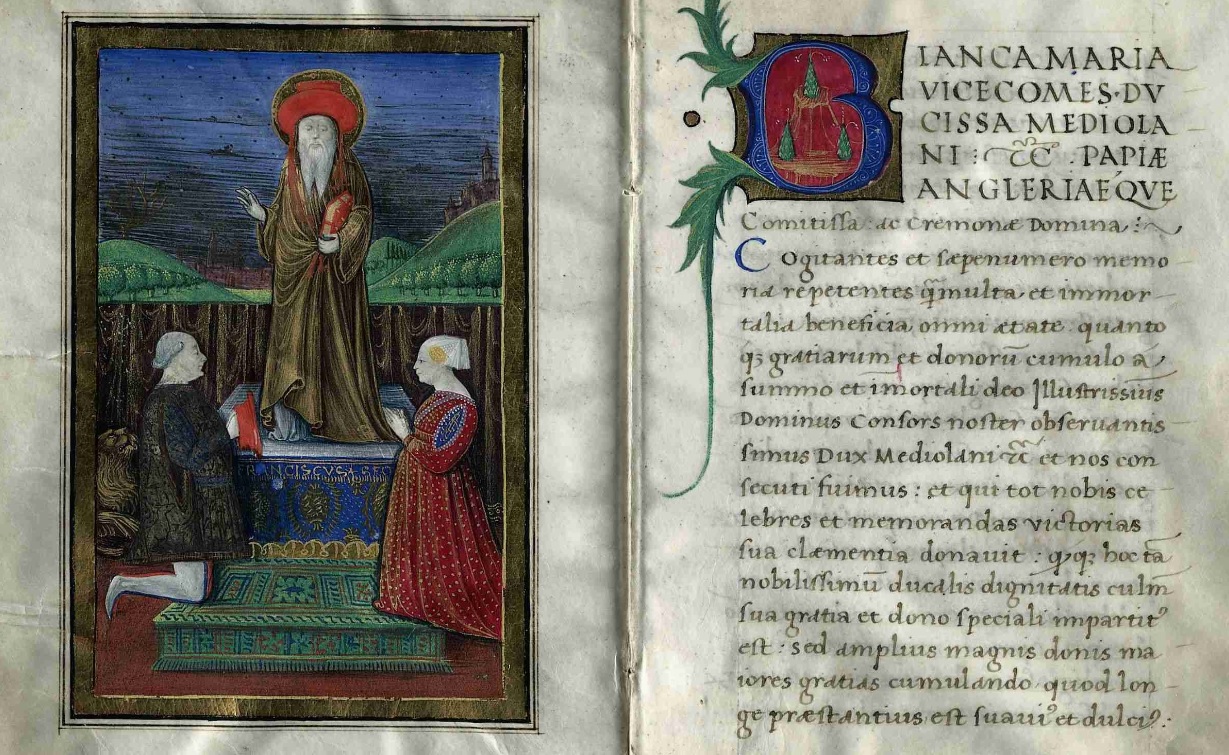 FRANCISCVS
BIANCA MARIA
VICECOMES·DV
CISSA MEDIOLA
NI : c̃c̃ . PAPIÆ
ANGLERIAEQ́VE
Comitissa ac Cremonæ Domina :~
Cogitantes et sæpenumero memo
ria repetentes q̃ multa et immor
talia beneficia, omni ætate quanto
qꝫ gratiarum et donorū cumulo a
summo et imortali deo Illustrissīus
Dominus Consors noster observantis
simus Dux Mediolani c̃c̃ et nos con
secuti fuimus : et qui tot nobis ce
lebres et memorandas victorias
sua clæmentia donavit : qꝫ hoc tā
nobilissimū ducalis dignitatis culm̄
sua gratia et dono speciali impartitꝰ
est : sed amplius magnis donis ma
iores gratias cumulando quod lon
ge præstantius est suaviꝰ et dulciꝰ :